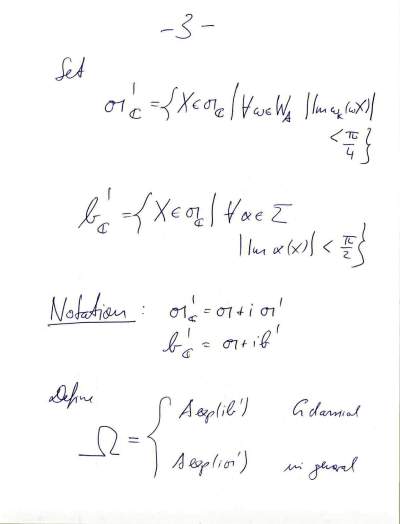 -3-
Set
𝔞'_ℂ = { X ∈ 𝔞_ℂ | ∀ω∈W_A |Im α_k(ωX)|
< π/4 }
𝔟'_ℂ = { X ∈ 𝔞_ℂ | ∀α ∈ Σ
|Im α(X)| < π/2 }
Notation : 𝔞'_ℂ = 𝔞 + i 𝔞'
𝔟'_ℂ = 𝔞 + i𝔟'
Define
Ω = { A exp(i𝔟') G classical
A exp(i𝔞') in general